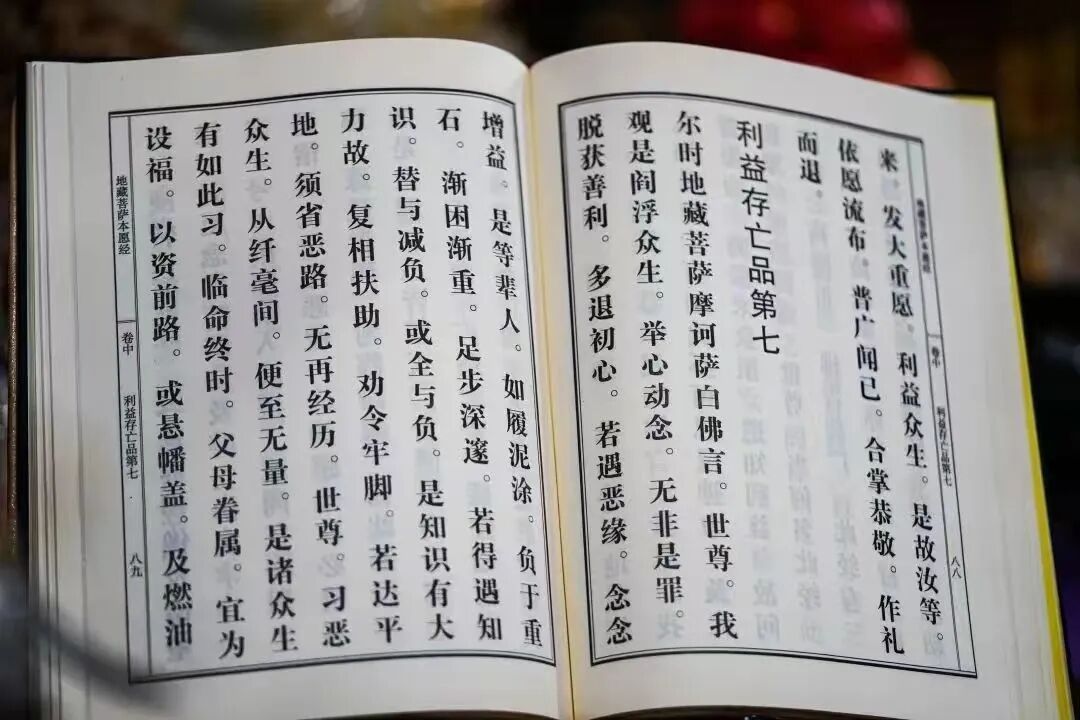 地藏菩萨本愿经
卷中
利益存亡品第七
八八
来。发大重愿。利益众生。是故汝等。
依愿流布。普广闻已。合掌恭敬。作礼
而退。
利益存亡品第七
尔时地藏菩萨摩诃萨白佛言。世尊。我
观是阎浮众生。举心动念。无非是罪。
脱获善利。多退初心。若遇恶缘。念念
增益。是等辈人。如履泥涂。负于重
石。渐困渐重。足步深邃。若得遇知
识。替与减负。或全与负。是知识有大
力故。复相扶助。劝令牢脚。若达平
地。须省恶路。无再经历。世尊。习恶
众生。从纤毫间。便至无量。是诸众生
有如此习。临命终时。父母眷属。宜为
设福。以资前路。或悬幡盖。及燃油
地藏菩萨本愿经
卷中
利益存亡品第七
八九